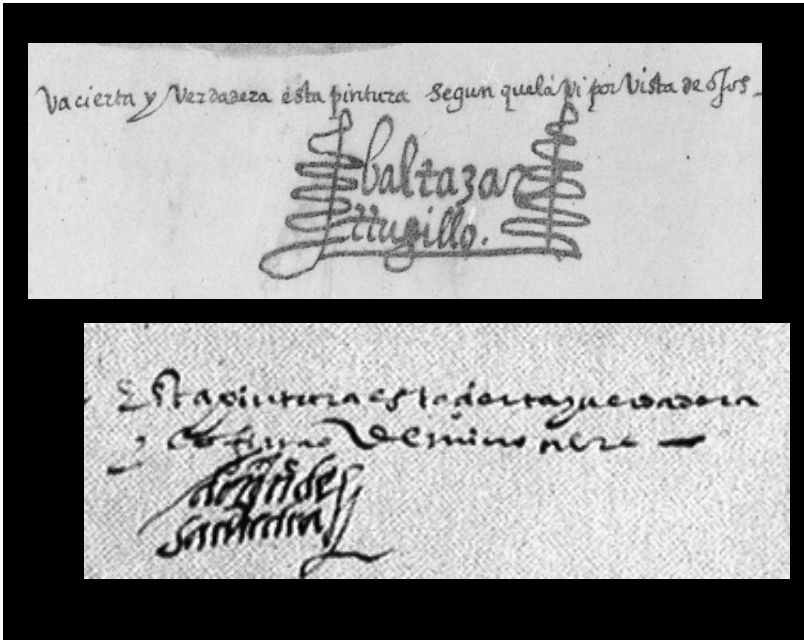 va cierta y Verdadera esta pintura segun que la vi por Vista de ojos
baltazar
trugillo.
Esta pintura esta cierta y uerdadera
y lo firmo de mi nonbre